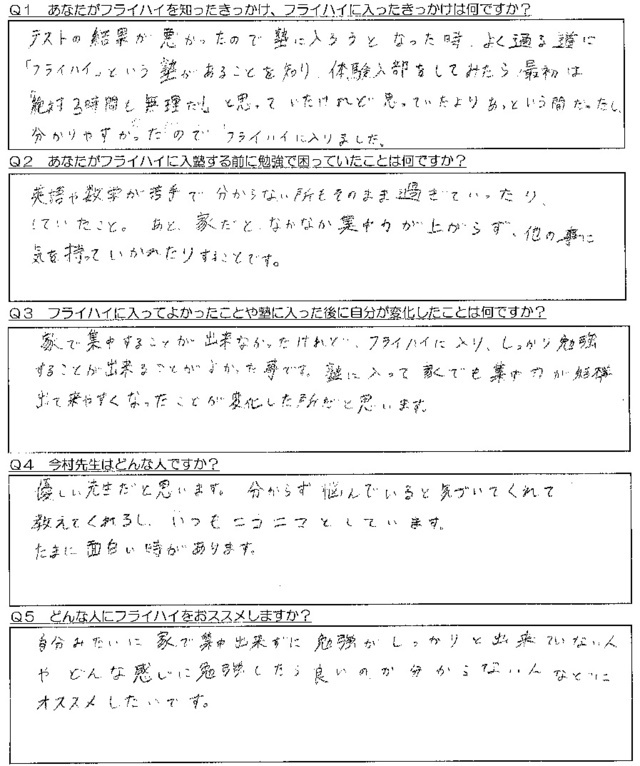 Q1 あなたがフライハイを知ったきっかけ、フライハイに入ったきっかけは何ですか？
テストの結果が悪かったので塾に入ろうとなった時、よく通る道に
「フライハイ」という塾があることを知り、体験入部をしてみたら最初は
「絶対3時間も無理だ!」と思っていたけれど思っていたよりあっという間だったし、
分かりやすかったのでフライハイに入りました。
Q2 あなたがフライハイに入塾する前に勉強で困っていたことは何ですか？
英語や数学が苦手で分からない所もそのまま過ぎていったり、
していたこと。あと、家だとなかなか集中力が上がらず、他の事に
気を持っていかれたりすることです。
Q3 フライハイに入ってよかったことや塾に入った後に自分が変化したことは何ですか？
家で集中することが出来なかったけれど、フライハイに入り、しっかり勉強
することが出来ることがよかった事です。塾に入って家でも集中力が結構
出て来やすくなったことが変化した所だと思います。
Q4 今村先生はどんな人ですか？
優しい先生だと思います。分からず悩んでいると気づいてくれて
教えてくれるし、いつもニコニコとしています。
たまに面白い時があります。
Q5 どんな人にフライハイをおススメしますか？
自分みたいに家で集中出来ずに勉強がしっかりと出来ていない人
やどんな感じに勉強したら良いのか分からない人などに
オススメしたいです。